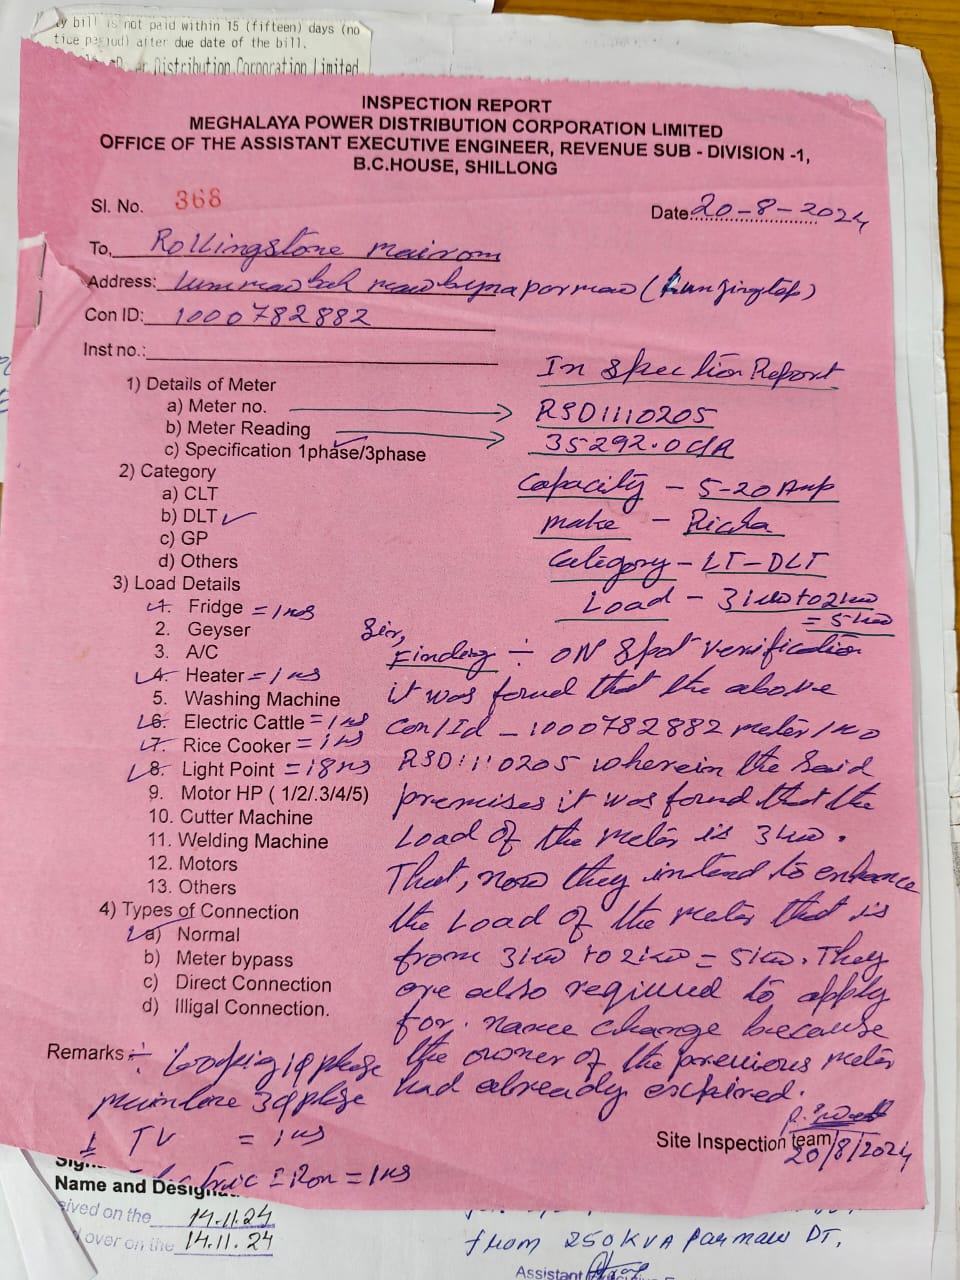 y bill is not paid within 15 (fifteen) days (no
tice period) after due date of the bill.
Distribution Corporation Limited
INSPECTION REPORT
MEGHALAYA POWER DISTRIBUTION CORPORATION LIMITED
OFFICE OF THE ASSISTANT EXECUTIVE ENGINEER, REVENUE SUB - DIVISION -1,
B.C.HOUSE, SHILLONG
Sl. No. 368
Date: 20-8-2024
To, Rollingstone Mairom
Address:
Con ID: 1000782882
Inst no.:
Inspection Report
1) Details of Meter
a) Meter no. RSD1110205
b) Meter Reading 35292.0
c) Specification 1phase/3phase
2) Category
Capacity - 5-20 Amp
a) CLT
b) DLT
make -
c) GP
d) Others
Category - LT-DLT
3) Load Details
Load - 3kw to 2kw
= 5kw
1. Fridge = 1no
2. Geyser
3. A/C
4. Heater = 1no
5. Washing Machine
6. Electric Cattle = 1no
7. Rice Cooker = 1no
8. Light Point = 18nos
9. Motor HP ( 1/2/.3/4/5)
10. Cutter Machine
11. Welding Machine
12. Motors
13. Others
4) Types of Connection
a) Normal
b) Meter bypass
c) Direct Connection
d) Illigal Connection.
Sir,
Finding ÷ ON Spot verification
it was found that the above
Con/Id - 1000782882 meter/no
RSD1110205 wherein the said
premises it was found that the
Load of the meter is 3kw.
That, now they intend to enhance
the Load of the meter that is
from 3kw to 2kw = 5kw. They
are also required to apply
for name change because
the owner of the previous meter
had already expired.
Remarks ÷ 1φ phase
main line 3φ phase
TV = 1no
Iron = 1no
Site Inspection team
20/8/2024
Name and Design
eived on the 14.11.24
over on the 14.11.24
from 250KVA Parmaw DT,
Assistant